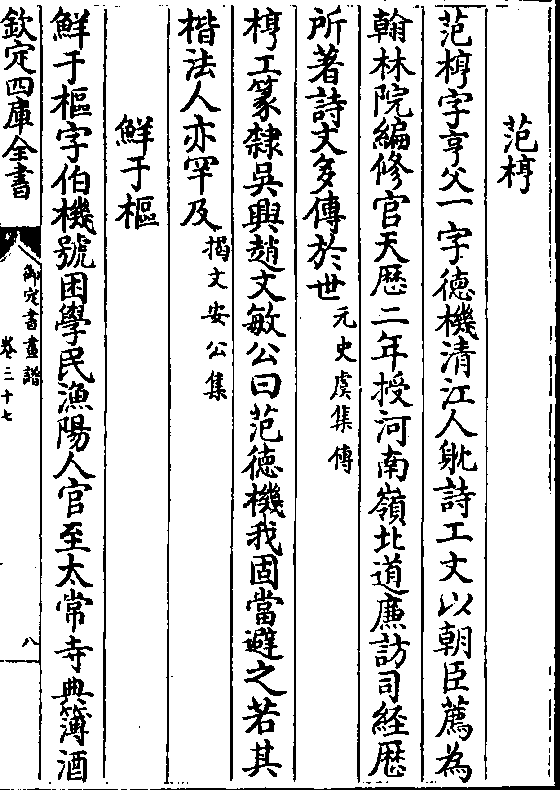 范梈
范梈字亨父一字徳機清江人躭詩工文以朝臣薦為
翰林院編修官天歴二年授河南嶺北道廉訪司經歴
所著詩文多傳於世元史虞集傳
梈工篆隸吳興趙文敏公曰范徳機我固當避之若其
楷法人亦罕及揭文安公集
鮮于樞
鮮于樞字伯機號困學民漁陽人官至太常寺典簿酒
欽定四庫全書
御定書畫譜
卷三十七
八